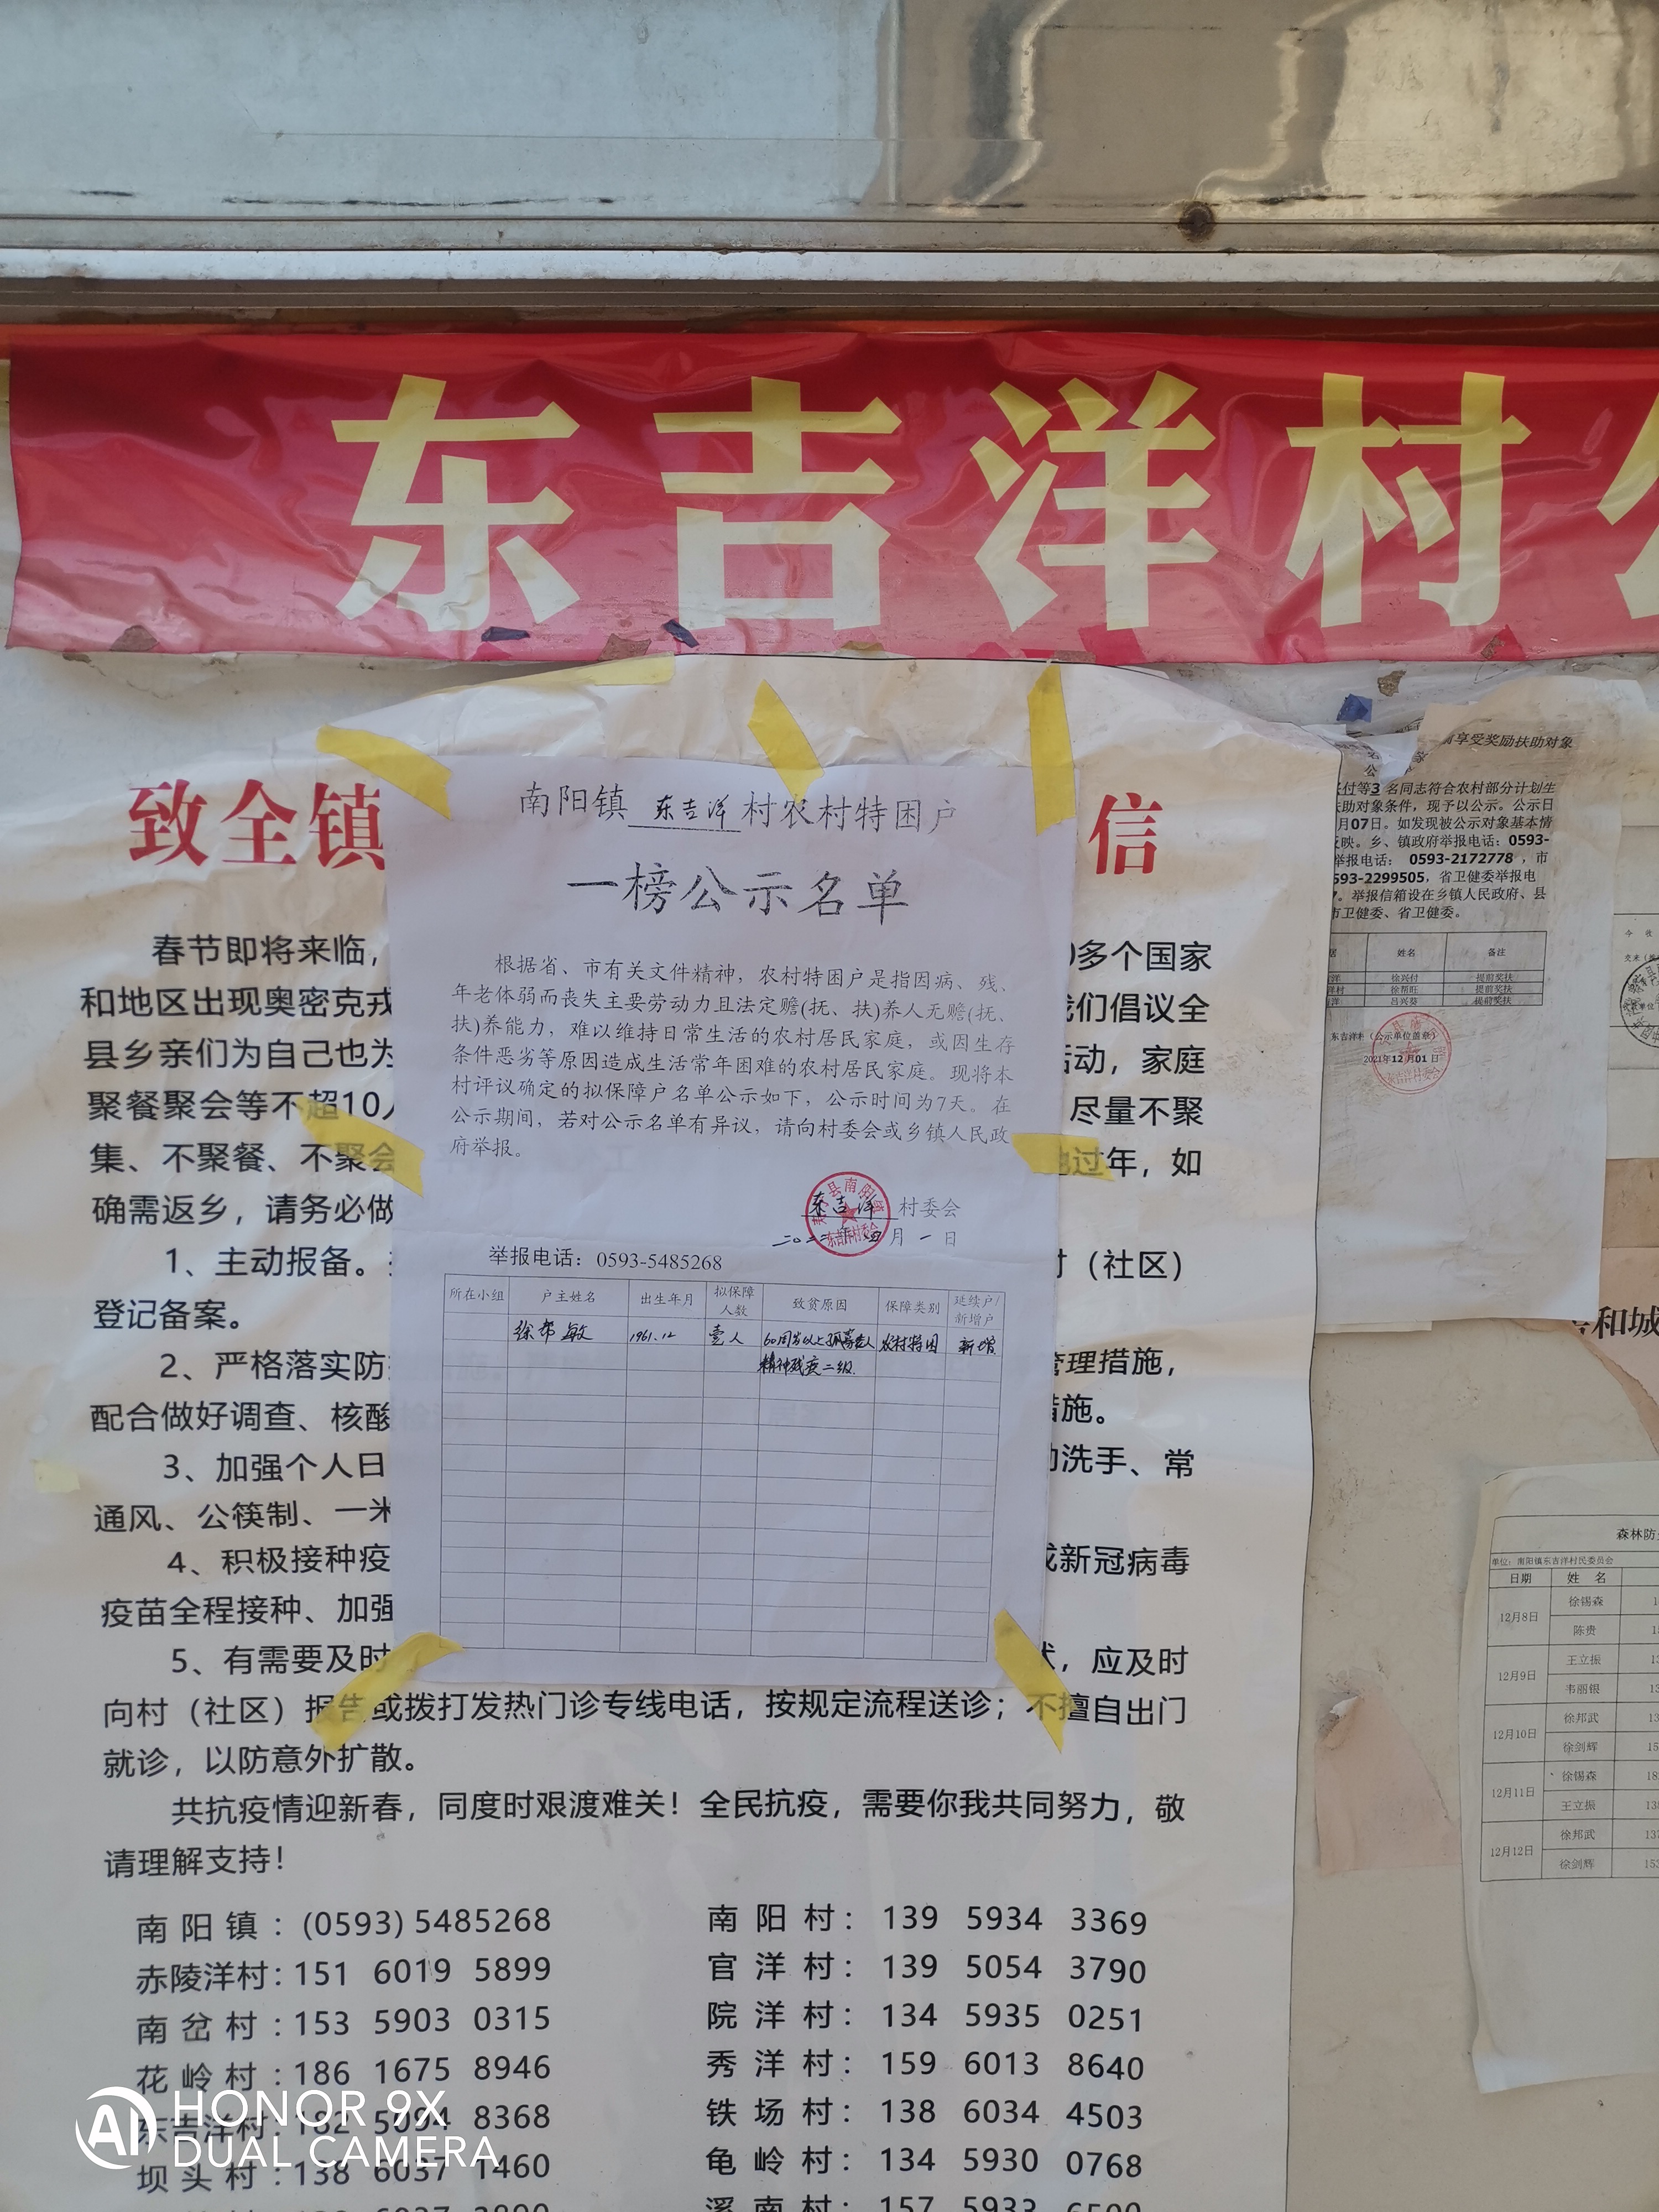 东吉洋村
致全镇
信
春节即将来临，
0多个国家
和地区出现奥密克戎
我们倡议全
县乡亲们为自己也为
活动，家庭
聚餐聚会等不超10人
尽量不聚
集、不聚餐、不聚会
地过年，如
确需返乡，请务必做
1、主动报备。
村（社区）
登记备案。
2、严格落实防
管理措施，
配合做好调查、核酸
措施。
3、加强个人日
勤洗手、常
通风、公筷制、一米
4、积极接种疫
成新冠病毒
疫苗全程接种、加强
5、有需要及时
状，应及时
向村（社区）报告或拨打发热门诊专线电话，按规定流程送诊；不擅自出门
就诊，以防意外扩散。
共抗疫情迎新春，同度时艰渡难关！全民抗疫，需要你我共同努力，敬
请理解支持！
南阳镇：(0593) 5485268
南阳村：139 5934 3369
赤陵洋村：151 6019 5899
官洋村：139 5054 3790
南岔村：153 5903 0315
院洋村：134 5935 0251
花岭村：186 1675 8946
秀洋村：159 6013 8640
东吉洋村：182 5094 8368
铁场村：138 6034 4503
坝头村：138 6037 1460
龟岭村：134 5930 0768
溪南村：157 5933 6500
南阳镇 东吉洋 村农村特困户
一榜公示名单
根据省、市有关文件精神，农村特困户是指因病、残、
年老体弱而丧失主要劳动力且法定赡(抚、扶)养人无赡(抚、
扶)养能力，难以维持日常生活的农村居民家庭，或因生存
条件恶劣等原因造成生活常年困难的农村居民家庭。现将本
村评议确定的拟保障户名单公示如下，公示时间为7天。在
公示期间，若对公示名单有异议，请向村委会或乡镇人民政
府举报。
东吉洋 村委会
二〇二二年四月一日
举报电话：0593-5485268
所在小组 户主姓名 出生年月 拟保障人数 致贫原因 保障类别 延续户/新增户
徐帮敏 1961.12 壹人 60周岁以上孤寡老人 农村特困 新增
精神残疾二级
享受奖励扶助对象
付等3 名同志符合农村部分计划生
助对象条件，现予以公示。公示日
月07日。如发现被公示对象基本情
反映。乡、镇政府举报电话：0593-
举报电话： 0593-2172778 ，市
593-2299505，省卫健委举报电
。举报信箱设在乡镇人民政府、县
市卫健委、省卫健委。
姓名 备注
徐兴付 提前奖扶
徐帮旺 提前奖扶
吕兴葵 提前奖扶
东吉洋村（公示单位盖章）
2021年12月01日
和城
森林防
单位：南阳镇东吉洋村民委员会
日期 姓 名
12月8日 徐锡森
陈贵
12月9日 王立振
韦丽银
12月10日 徐邦武
徐剑辉
12月11日 徐锡森
王立振
12月12日 徐邦武
徐剑辉
AI HONOR 9X
DUAL CAMERA